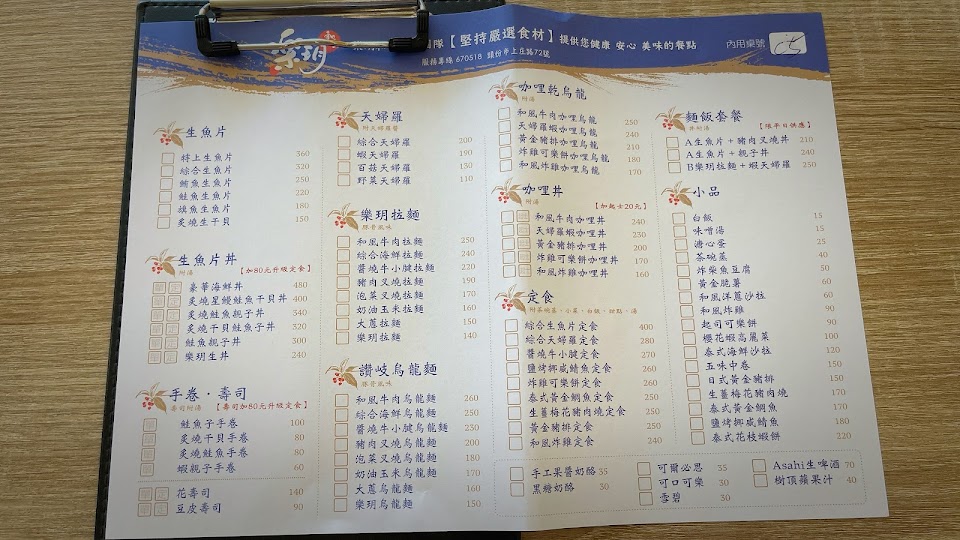 樂玥
團隊【堅持嚴選食材】提供您健康 安心 美味的餐點
服務專線 670518 頭份市上庄路72號
內用桌號
生魚片
特上生魚片 360
綜合生魚片 320
鮪魚生魚片 250
鮭魚生魚片 220
旗魚生魚片 180
炙燒生干貝 150
生魚片丼
附湯 【加80元升級定食】
豪華海鮮丼 480
炙燒星鰻鮭魚干貝丼 400
炙燒鮭魚親子丼 340
炙燒干貝鮭魚子丼 320
鮭魚親子丼 300
樂玥生丼 240
手卷·壽司
壽司附湯 【壽司加80元升級定食】
鮭魚子手卷 100
炙燒干貝手卷 80
炙燒鮭魚手卷 80
蝦親子手卷 60
花壽司 140
豆皮壽司 90
天婦羅
附天婦羅醬
綜合天婦羅 200
蝦天婦羅 190
百菇天婦羅 130
野菜天婦羅 110
樂玥拉麵
豚骨風味
和風牛肉拉麵 250
綜合海鮮拉麵 240
醬燒牛小腱拉麵 220
豬肉叉燒拉麵 190
泡菜叉燒拉麵 170
奶油玉米拉麵 160
大蔥拉麵 150
樂玥拉麵 140
讚岐烏龍麵
豚骨風味
和風牛肉烏龍麵 260
綜合海鮮烏龍麵 250
醬燒牛小腱烏龍麵 230
豬肉叉燒烏龍麵 200
泡菜叉燒烏龍麵 180
奶油玉米烏龍麵 170
大蔥烏龍麵 160
樂玥烏龍麵 150
咖哩乾烏龍
附湯
和風牛肉咖哩烏龍 250
天婦羅蝦咖哩烏龍 240
黃金豬排咖哩烏龍 210
炸雞可樂餅咖哩烏龍 180
和風炸雞咖哩烏龍 170
咖哩丼
附湯 【加起士20元】
和風牛肉咖哩丼 240
天婦羅蝦咖哩丼 230
黃金豬排咖哩丼 200
炸雞可樂餅咖哩丼 170
和風炸雞咖哩丼 160
定食
附茶碗蒸·小菜·白飯·甜點·湯
綜合生魚片定食 400
綜合天婦羅定食 280
醬燒牛小腱定食 270
鹽烤挪威鯖魚定食 260
炸雞可樂餅定食 260
泰式黃金鯛魚定食 250
生薑梅花豬肉燒定食 250
黃金豬排定食 250
和風炸雞定食 240
麵飯套餐
【限平日供應】
A生魚片+豬肉叉燒丼 210
A生魚片+親子丼 240
B樂玥拉麵+蝦天婦羅 250
小品
白飯 15
味噌湯 15
溏心蛋 25
茶碗蒸 40
炸柴魚豆腐 50
黃金脆薯 60
和風洋蔥沙拉 60
和風炸雞 90
起司可樂餅 90
櫻花蝦高麗菜 100
泰式海鮮沙拉 120
五味中卷 150
日式黃金豬排 150
生薑梅花豬肉燒 150
泰式黃金鯛魚 170
鹽烤挪威鯖魚 180
泰式花枝蝦餅 220
手工果醬奶酪 35
黑糖奶酪 30
可爾必思 35
可口可樂 30
雪碧 30
Asahi生啤酒 70
樹頂蘋果汁 40